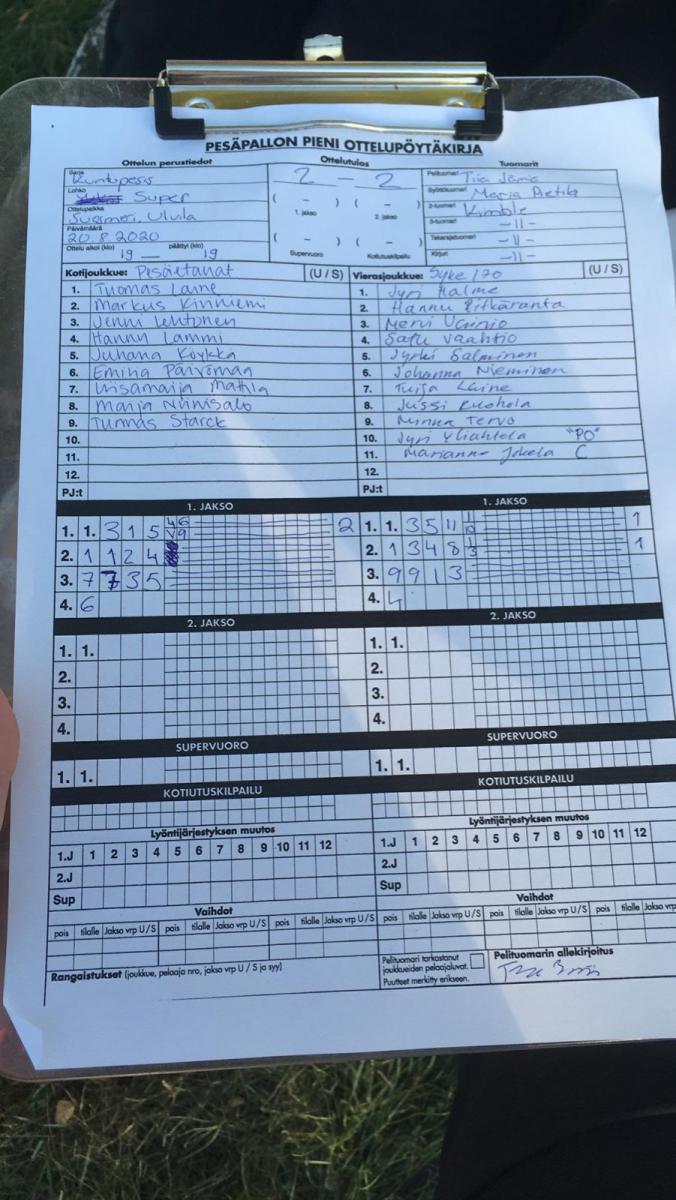 PESÄPALLON PIENI OTTELUPÖYTÄKIRJA
Ottelun perustiedot Ottelutulos Tuomarit
Sarja Kuntopesis
Lohko Super
Ottelupaikka Suosmeri, Ulvila
Päivämäärä 20.8.2020
Ottelu alkoi (klo) 19 päättyi (klo) 19
2 - 2
( - ) ( - )
1. jakso 2. jakso
( - ) ( - )
Supervuoro Kotiutuskilpailu
Pelituomari Tiia Jämä
Syöttötuomari Merja Aetila
2-tuomari Kimble
3-tuomari -11-
Takarajatuomari -11-
Kirjuri -11-
Kotijoukkue: Pesäetanat (U / S)
1. Tuomas Laine
2. Markus Kinniemi
3. Jenni Lehtonen
4. Hannu Lammi
5. Juhana Köykkä
6. Emina
7. Mathla
8. Marja Niinisalo
9. Tuomas Starck
10.
11.
12.
PJ:t
Vierasjoukkue: Syke/70 (U / S)
1. Jyri Halme
2. Hannu Pitkäranta
3. Mervi Vainio
4. Satu Vaahtio
5. Jyrki Salminen
6. Johanna Nieminen
7. Tuija Laine
8. Jussi Ruohola
9. Minna Tervo
10. Jyri Yliahtola "PO"
11. Marianne Jokela C
12.
PJ:t
1. JAKSO 1. JAKSO
1. 1. 3 1 5 2 1. 1. 3 5 11 1
2. 1 1 2 4 2. 1 3 4 8 1
3. 7 7 3 5 3. 9 9 1 3
4. 6 4. 4
2. JAKSO 2. JAKSO
1. 1. 1. 1.
2. 2.
3. 3.
4. 4.
SUPERVUORO SUPERVUORO
1. 1. 1. 1.
KOTIUTUSKILPAILU KOTIUTUSKILPAILU
Lyöntijärjestyksen muutos Lyöntijärjestyksen muutos
1.J 1 2 3 4 5 6 7 8 9 10 11 12 1.J 1 2 3 4 5 6 7 8 9 10 11 12
2.J 2.J
Sup Sup
Vaihdot Vaihdot
pois tilalle Jakso vrp U / S pois tilalle Jakso vrp U / S pois tilalle Jakso vrp U / S pois tilalle Jakso vrp
Rangaistukset (joukkue, pelaaja nro, jakso vrp U / S ja syy)
Pelituomari tarkastanut
joukkueiden pelaajaluvat.
Puutteet merkitty erikseen.
Pelituomarin allekirjoitus